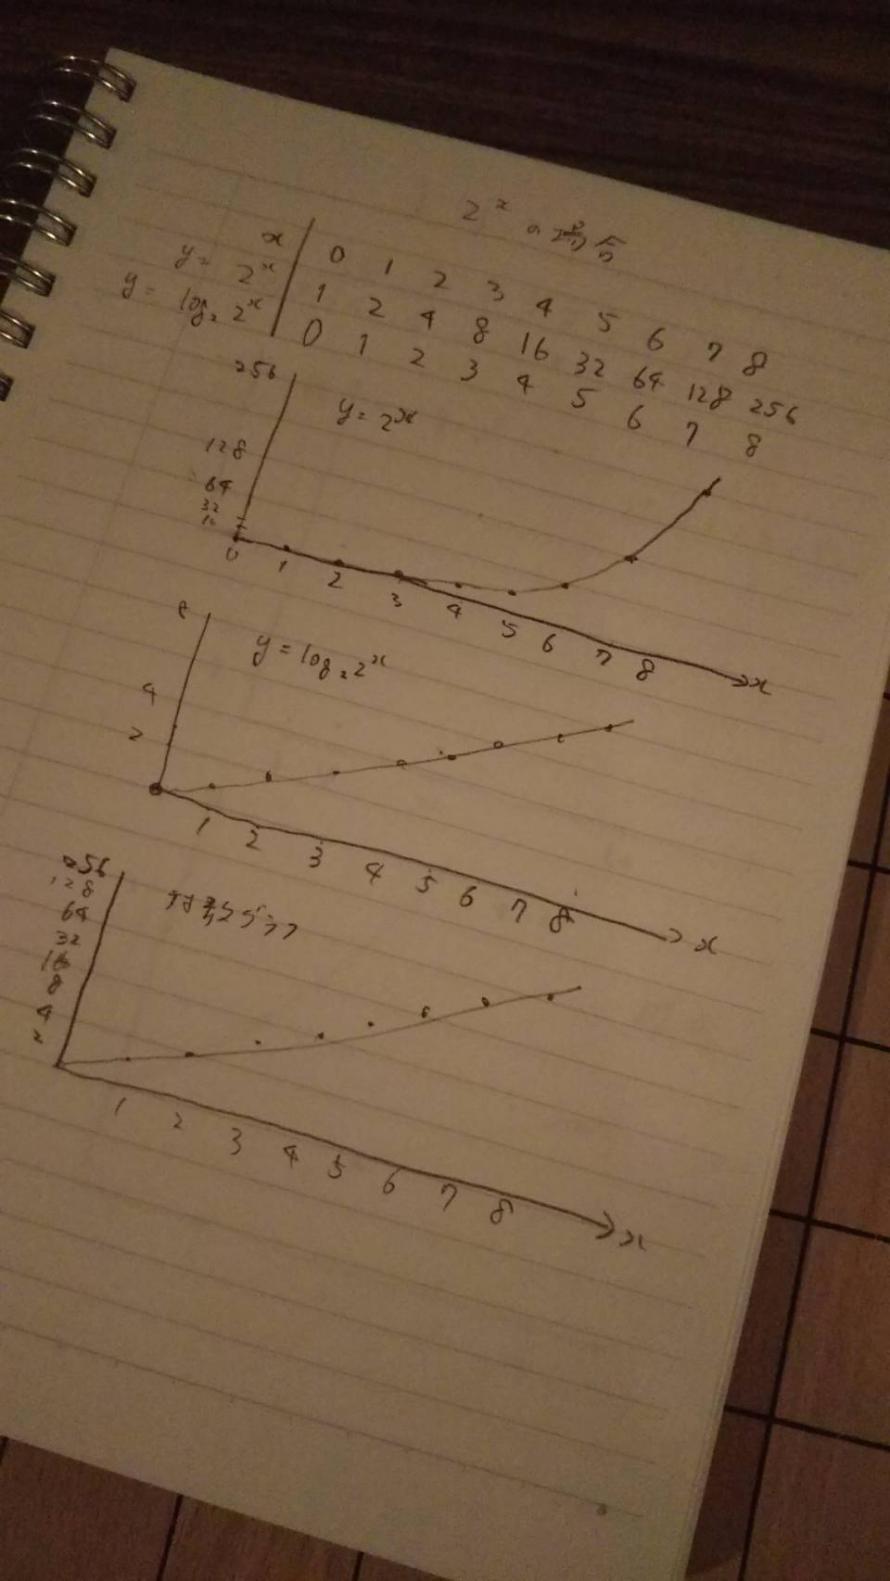 2ˣ の場合
x 0 1 2 3 4 5 6 7 8
y = 2ˣ 1 2 4 8 16 32 64 128 256
y = log₂ 2ˣ 0 1 2 3 4 5 6 7 8
256
y = 2ˣ
128
64
32
0 1 2 3 4 5 6 7 8 x
8
y = log₂ 2ˣ
4
2
1 2 3 4 5 6 7 8 x
256
128
対数グラフ
64
32
16
8
4
2
1 2 3 4 5 6 7 8 x